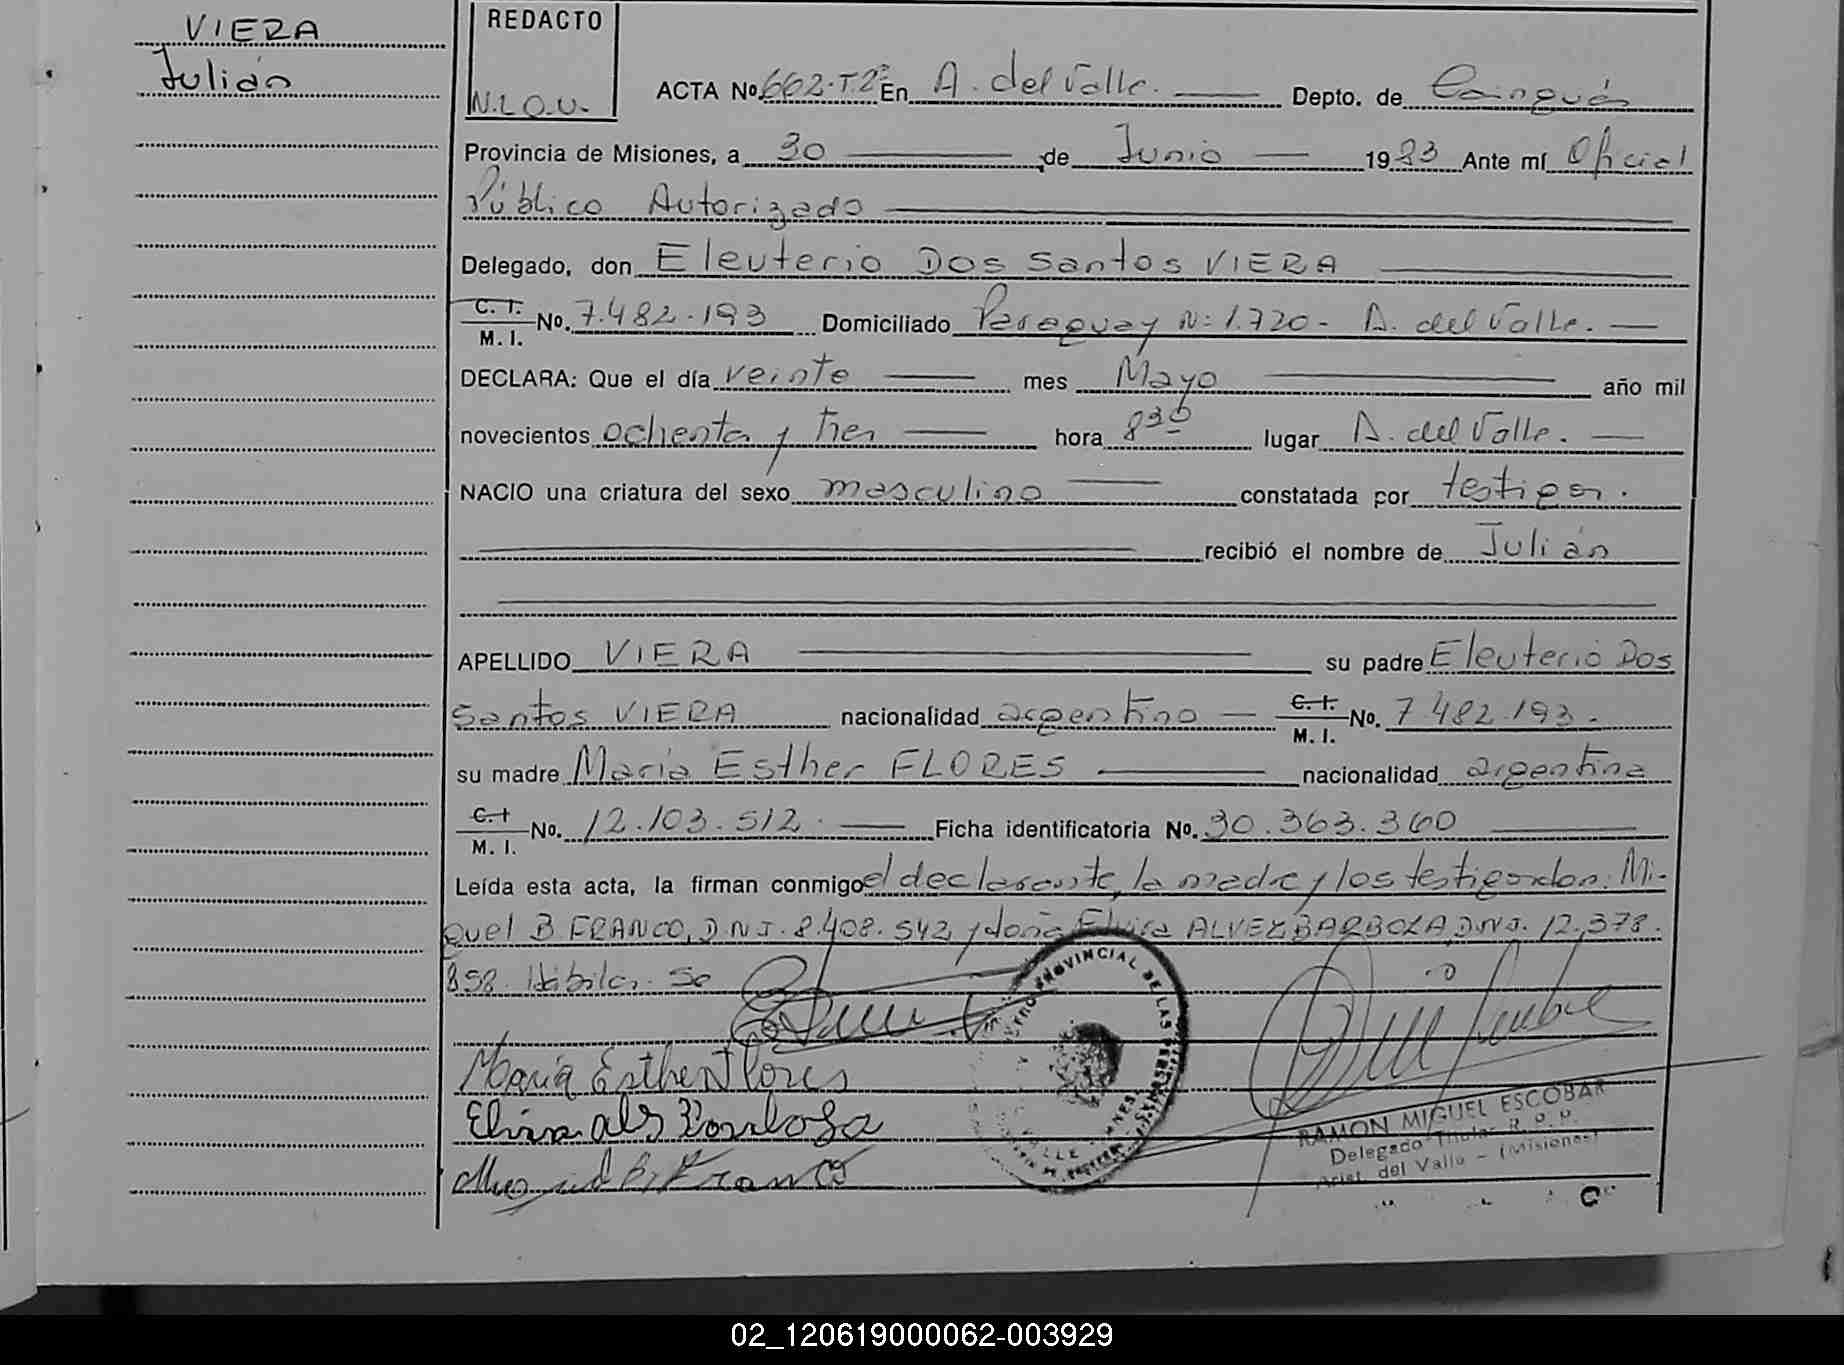 VIERA
Julián
REDACTO
N.L.O.U.
ACTA No. 662-T2º En A. del Valle. Depto. de Cainguás
Provincia de Misiones, a 30 de Junio 1983 Ante mí Oficial
Público Autorizado
Delegado, don Eleuterio Dos Santos VIERA
C. I.
M. I. No. 7.482.193 Domiciliado Paraguay Nº 1.720 - A. del Valle.
DECLARA: Que el día veinte mes Mayo año mil
novecientos ochenta y tres hora 8 30 lugar A. del Valle.
NACIO una criatura del sexo masculino constatada por testigos.
recibió el nombre de Julián
APELLIDO VIERA su padre Eleuterio Dos
Santos VIERA nacionalidad argentino C. I. M. I. No. 7.482.193.
su madre María Esther FLORES nacionalidad argentina
C. I. M. I. No. 12.103.512. Ficha identificatoria No. 30.363.360
Leída esta acta, la firman conmigo el declarante, la madre y los testigos don: Mi-
guel B. FRANCO, D.N.I. 8.408.542 y doña Elvira ALVEZ BARBOZA, D.N.I. 12.378.
858. Hábiles.
María Esther Flores
Miguel B. Franco
PROVINCIAL DE LAS PERSONAS
RAMON MIGUEL ESCOBAR
Delegado Titular R. P.
Arist. del Valle - (Misiones)
02_120619000062-003929